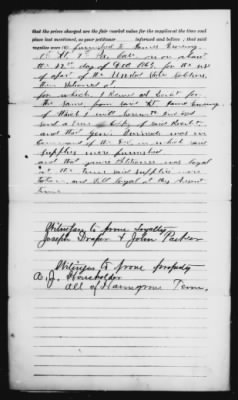 that the prices charged are the fair market value for the supplies at the time and
place last mentioned, as your petitioner informed and before, that said
supplies were (6) furnished to James
1st Lt. 7th Pa. Cal. on or about
the 12th day of Dec 1863 for the use
of a part of the United States Soldiers,
then stationed at
for which I have a Receipt for
the same, from said Lt. James
of which I will herewith
and a true Copy of said Receipt.
and that Genl. was in
Command of the in which said
supplies were furnished
and that your Petitioner was loyal
at the time said supplies were
taken, and still loyal at this present
time
Witnesses to prove loyalty
Joseph Draper & John Parker
Witness to prove property
A. J. Householder
all of Tenn.